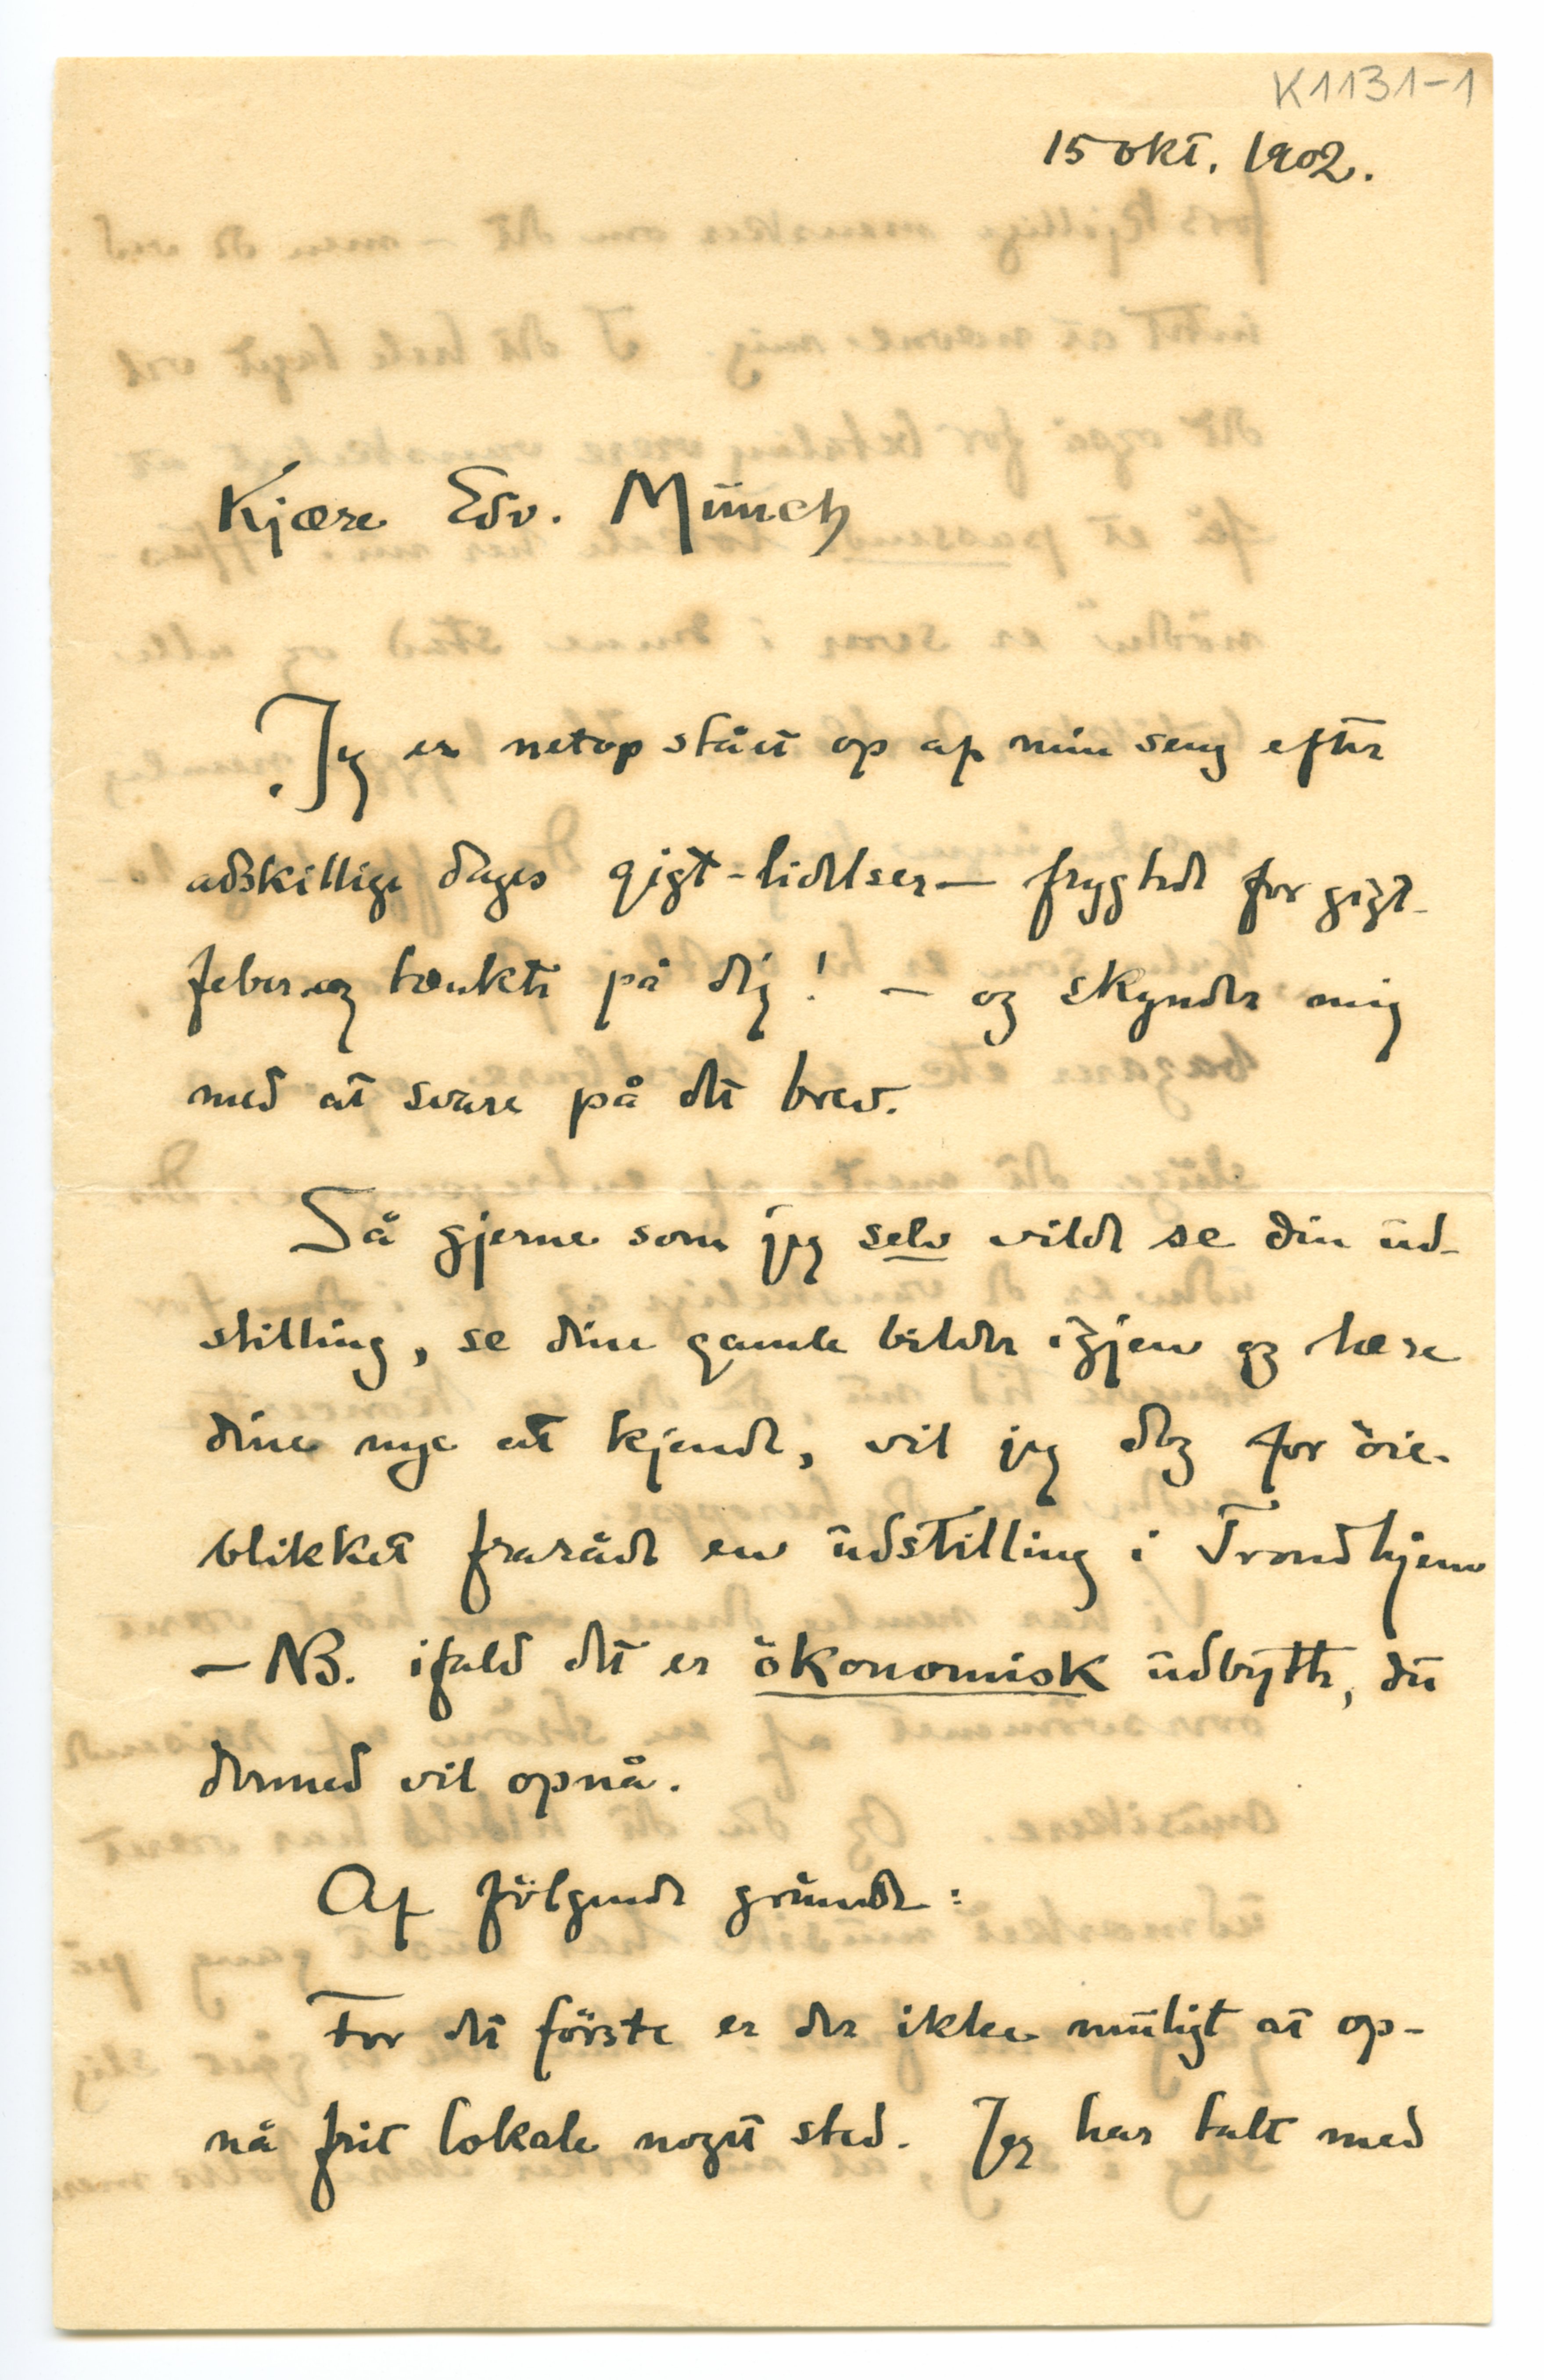 K1131-1
15 okt. 1902.
Kjære Edv. Münch
Jeg er netop stået op af min seng efter
adskillige dages gigt-lidelser — frygtede for gigt-
feber og tænkte på dig! — og skynder mig
med at svare på dit brev.
Så gjerne som jeg selv vilde se din ud-
stilling, se dine gamle bilder igjen og lære
dine nye at kjende, vil jeg dog for öie-
blikket fraråde en udstilling i Trondhjem
— NB. ifald det er ökonomisk udbytte, du
dermed vil opnå.
Af fölgende grunde:
For det förste er der ikke muligt at op-
nå frit lokale noget sted. Jeg har talt med